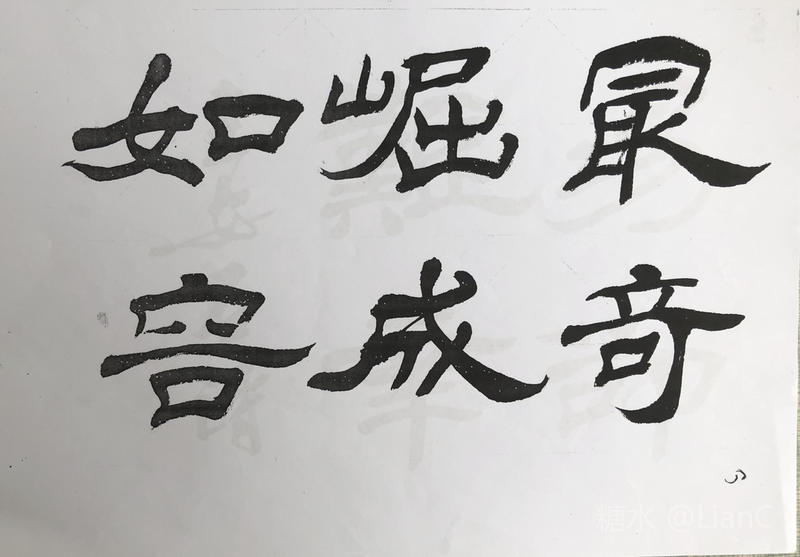 最奇
崛成
如容
糖水 @LianC